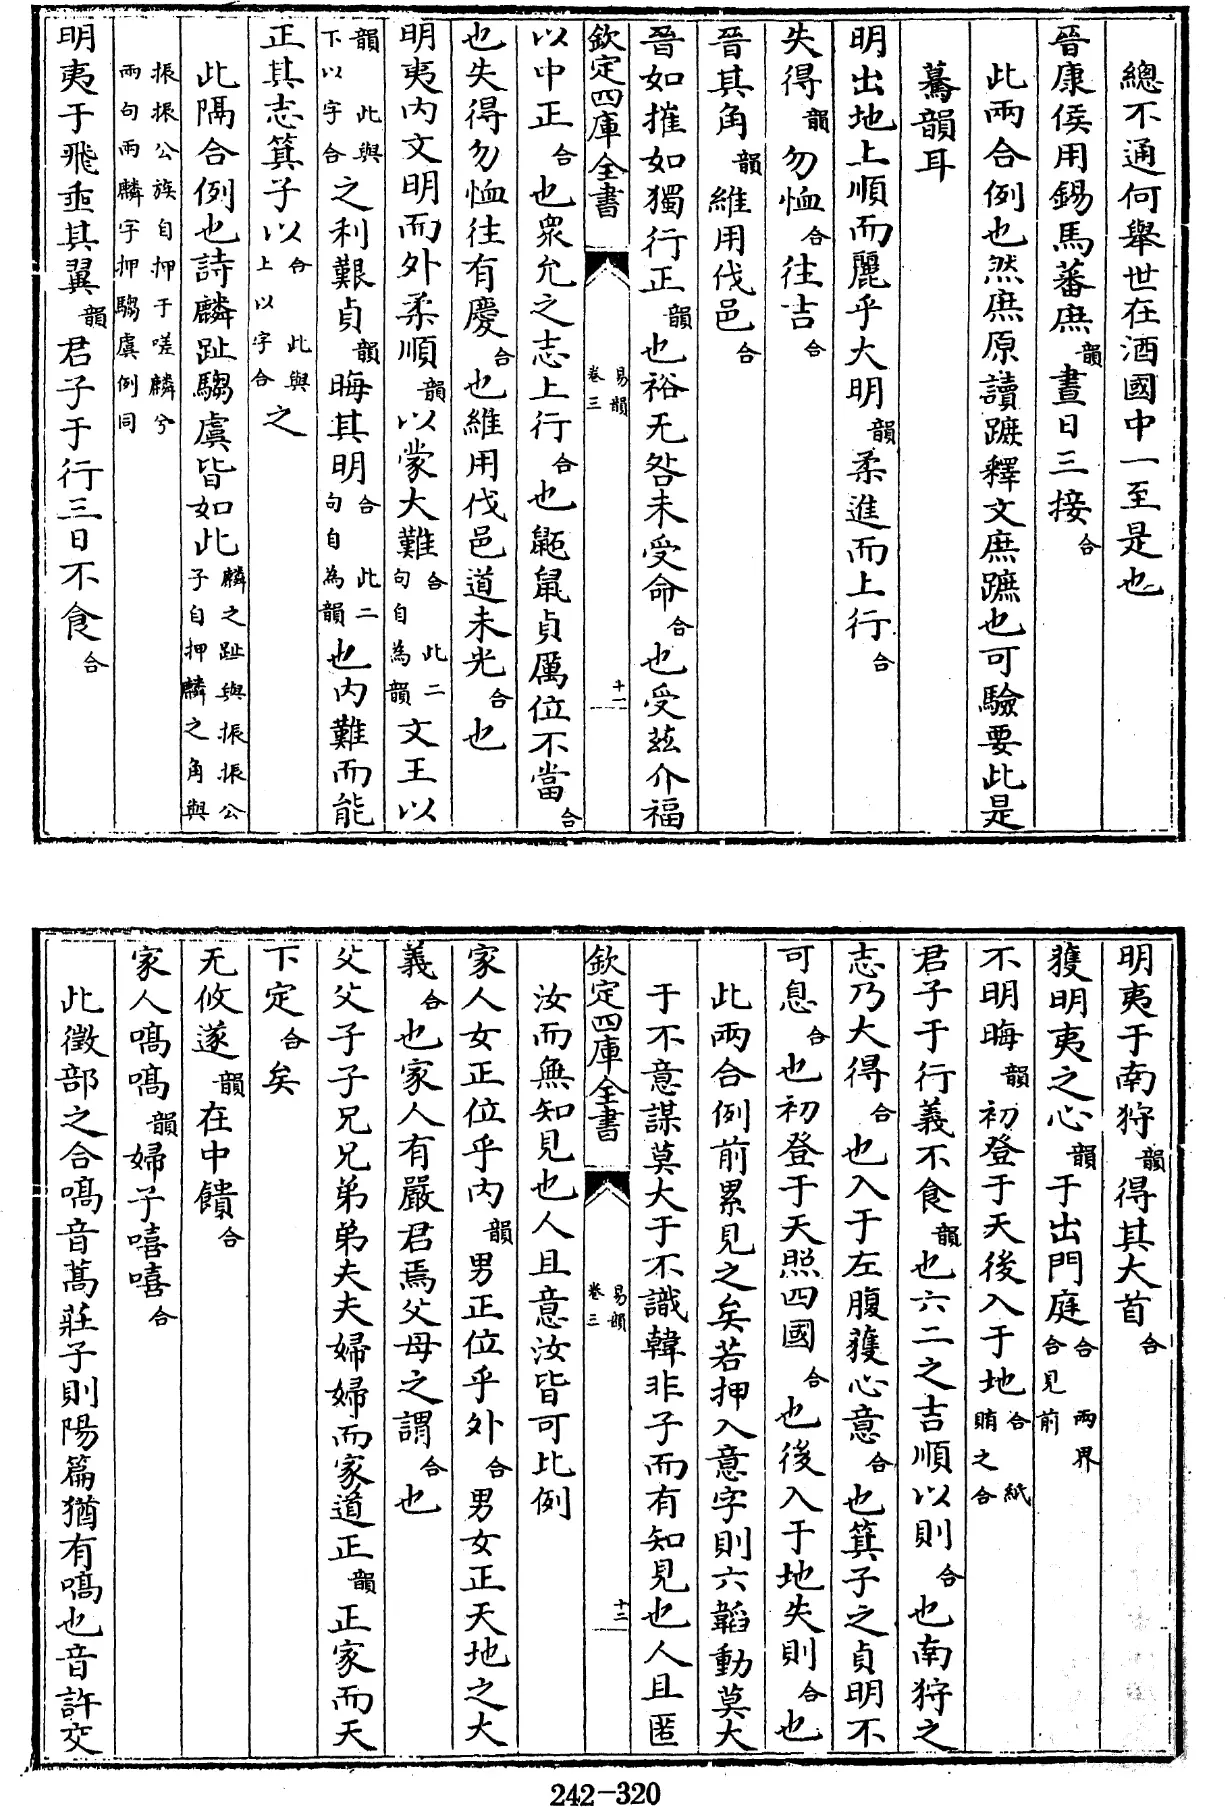 總不通何舉世在酒國中一至是也
晉康侯用錫馬蕃庶韻晝日三接合
此兩合例也然庶原讀蹠釋文庶蹠也可驗要此是
驀韻耳
明出地上順而麗乎大明韻柔進而上行合
失得韻勿恤合往吉合
晉其角韻維用伐邑合
晉如摧如獨行正韻也裕无咎未受命合也受玆介福
欽定四庫全書 易韻卷三 十二
以中正合也衆允之志上行合也鼫鼠貞厲位不當合
也失得勿恤往有慶合也維用伐邑道未光合也
明夷内文明而外柔順韻以蒙大難合此二句自為韻文王以
韻此與下以字合之利艱貞韻晦其明合此二句自為韻也内難而能
正其志箕子以合此與上以字合之
此隔合例也詩麟趾騶虞皆如此麟之趾與振振公子自押麟之角與
振振公族自押于嗟麟兮兩句兩麟字押騶虞例同
明夷于飛垂其翼韻君子于行三日不食合
明夷于南狩韻得其大首合
獲明夷之心韻于出門庭合兩界合見前
不明晦韻初登于天後入于地合紙賄之合
君子于行義不食韻也六二之吉順以則合也南狩之
志乃大得合也入于左腹獲心意合也箕子之貞明不
可息合也初登于天照四國合也後入于地失則合也
此兩合例前累見之矣若押入意字則六韜動莫大
于不意謀莫大于不識韓非子而有知見也人且匿
欽定四庫全書 易韻卷三 十三
汝而無知見也人且意汝皆可比例
家人女正位乎内韻男正位乎外合男女正天地之大
義合也家人有嚴君焉父母之謂合也
父父子子兄兄弟弟夫夫婦婦而家道正韻正家而天
下定合矣
无攸遂韻在中饋合
家人嗃嗃韻婦子嘻嘻合
此徵部之合嗃音蒿莊子則陽篇猶有嗃也音許交
242-320